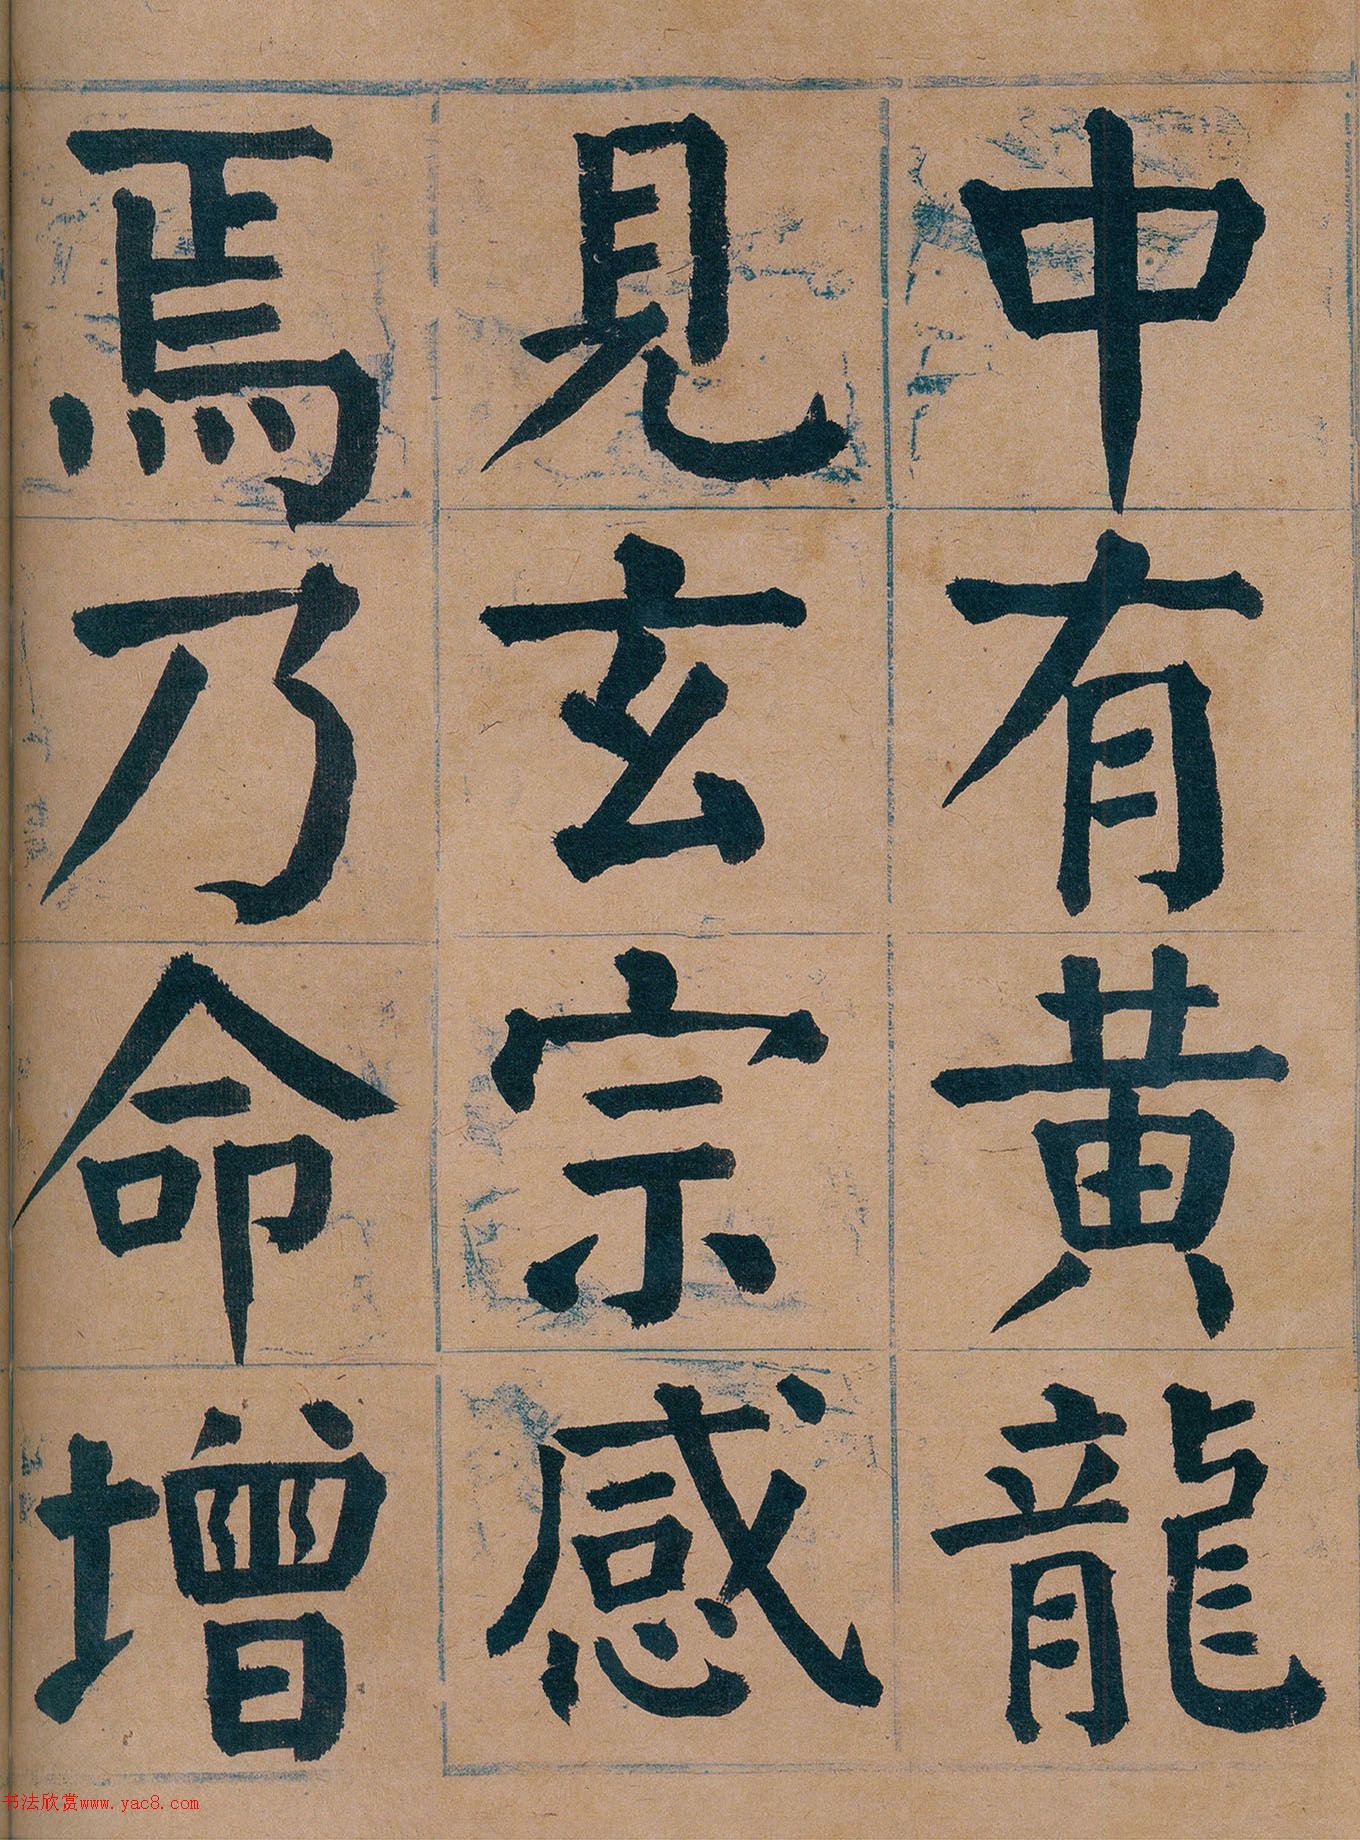 中有黄龍
見玄宗感
焉乃命增
书法欣赏www.yac8.com